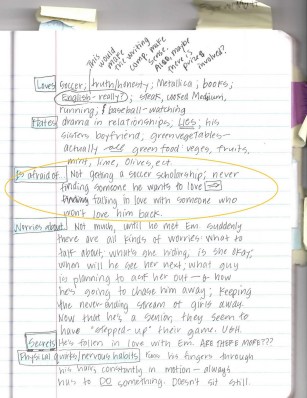 This would make more sense
the writing comp.
Also maybe there is prizes involved?
Loves Soccer; truth/honesty; Metallica; books;
English-really?; steak, cooked medium,
running; & baseball-watching
Hates drama in relationships; LIES; his
sisters boyfriend, green vegetables-
actually all green food: veges, fruits,
mint, lime, olives, ect.
So afraid of... Not getting a soccer scholarship; never
finding someone he wants to love
falling in love with someone who
won't love him back.
Worries about Not much, until he met Em. Suddenly
there are all kinds of worries: what to
talk about; what's she hiding; is she okay;
when will he see her next; what guy
is planning to ask her out & how
he's going to chase him away; keeping
the never-ending stream of girls away.
Now that he's a senior, they seem to
have "stepped-up" their game. UGH.
Secrets He's fallen in love with Em. ARE THERE MORE???
Physical quirks/nervous habits Runs his fingers through
his hair, constantly in motion - always
has to DO something. Doesn't sit still.